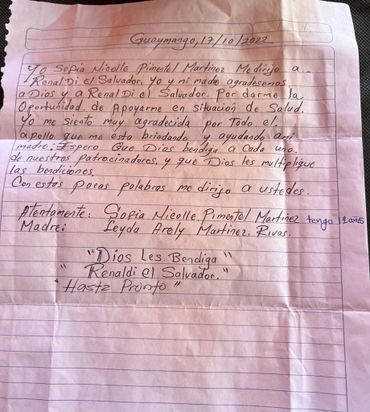 Guaymango, 17/10/2022
Yo Sofia Nicolle Pimentel Martinez Me dirijo a.
Renal Di el Salvador. Yo y mi madre agradesemos
a Dios y a Renal Di al Salvador. Por darme la
Oportunidad. de Apoyarme en situacion de Salud.
Yo me siento muy agradecida por Todo el
apollo que me esta brindando y ayudando ami
madre: Espero Que Dios bendiga a cada uno
de nuestros patrocinadores, y que Dios les multiplique
las bendiciones.
Con estas pocas palabras me dirijo a ustedes.
Atentamente: Sofia Nicolle. Pimentel Martinez tengo años
Madre: Leyda Arely Martinez. Rivas.
"Dios Les Bendiga"
"Renaldi el Salvador."
"Hasta Pronto"